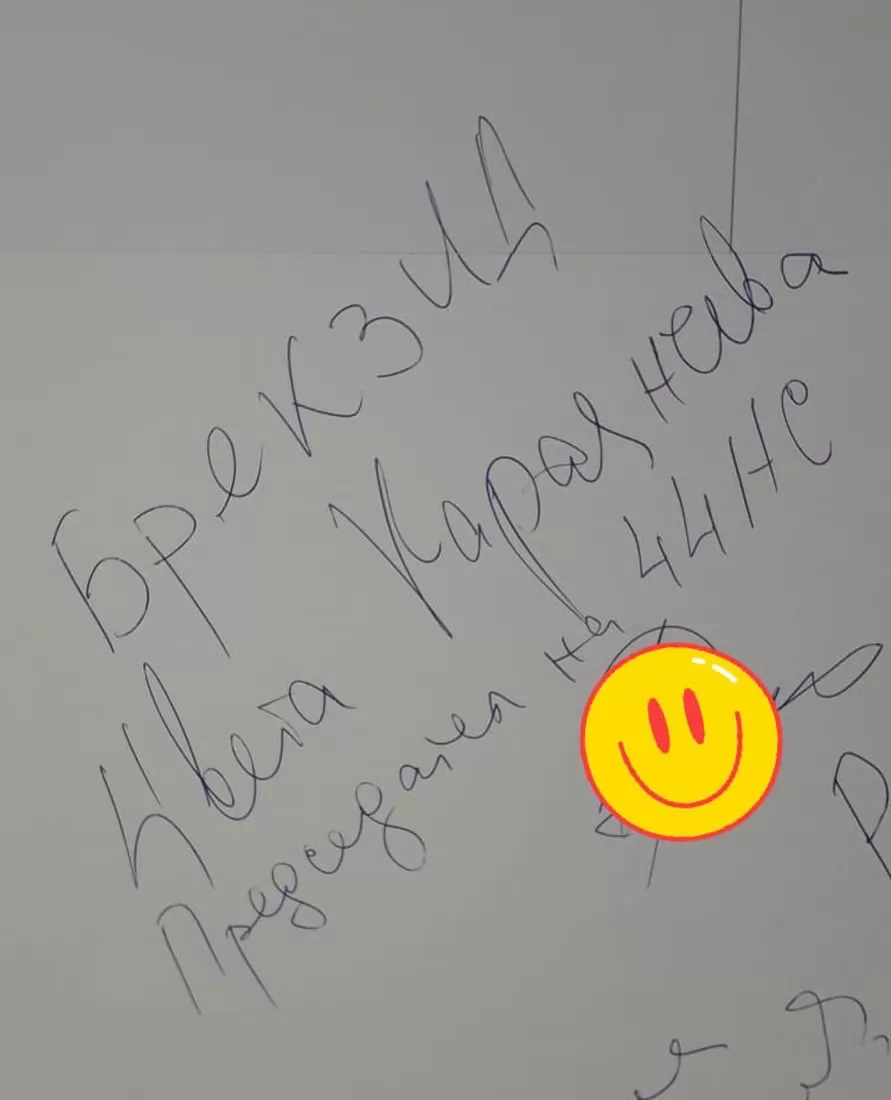 Брекзид
Цвета Караянчева
Председател на 44 НС